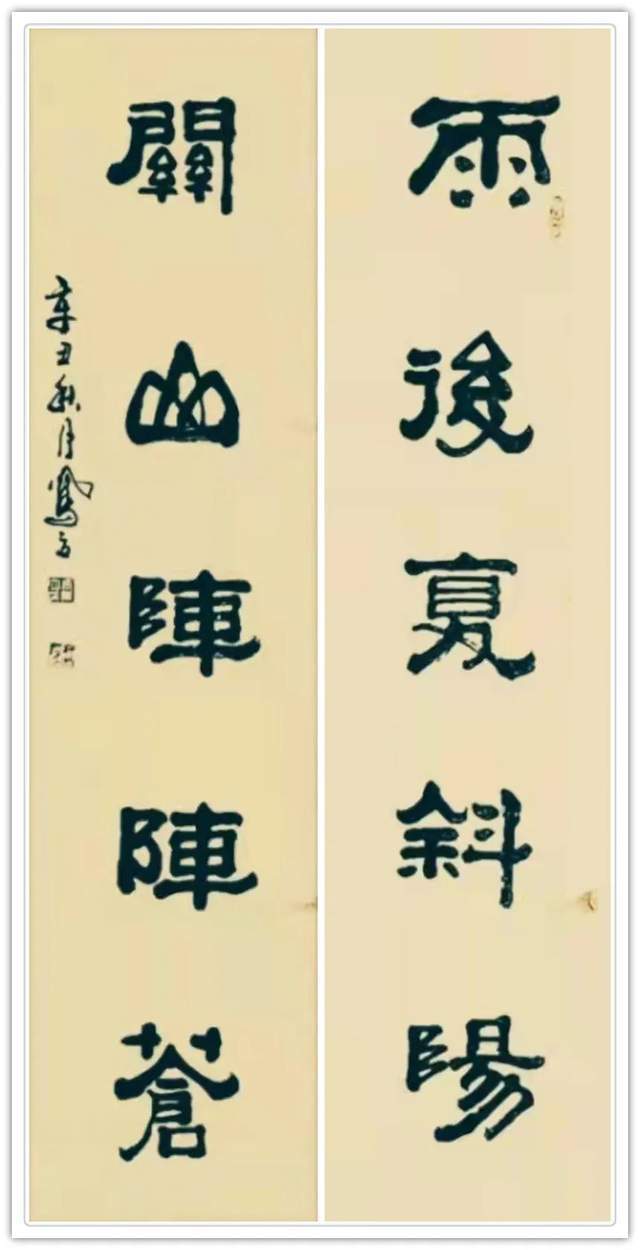 雨後夏斜陽
關山陣陣蒼
辛丑秋月鳳